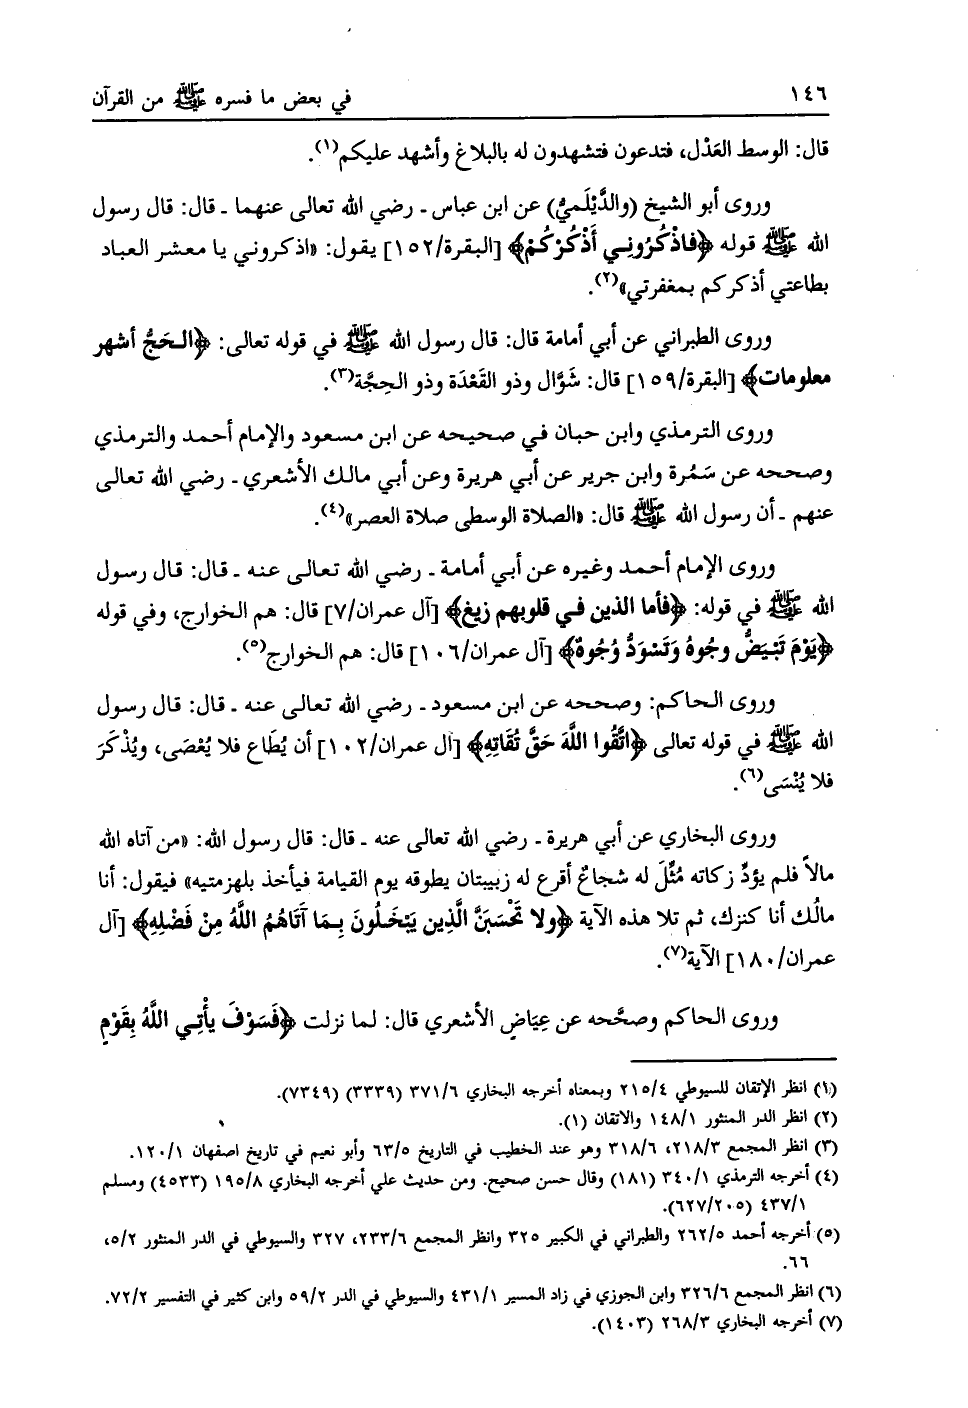 ١٤٦
في بعض ما فسره ﷺ من القرآن
قال: الوسط العَدْل، فتدعون فتشهدون له بالبلاغ وأشهد عليكم(١).
وروى أبو الشيخ (والدَّيْلَميُّ) عن ابن عباس ـ رضي الله تعالى عنهما ـ قال: قال رسول
الله ﷺ قوله ﴿فاذْكُرُونِي أَذْكُرْكُمْ﴾ [البقرة/١٥٢] يقول: «اذكروني يا معشر العباد
بطاعتي أذكركم بمغفرتي»(٢).
وروى الطبراني عن أبي أمامة قال: قال رسول الله ﷺ في قوله تعالى: ﴿الحَجُّ أشهر
معلومات﴾ [البقرة/١٥٩] قال: شَوَّال وذو القَعْدَة وذو الحِجَّة(٣).
وروى الترمذي وابن حبان في صحيحه عن ابن مسعود والإمام أحمد والترمذي
وصححه عن سَمُرة وابن جرير عن أبي هريرة وعن أبي مالك الأشعري ـ رضي الله تعالى
عنهم ـ أن رسول الله ﷺ قال: «الصلاة الوسطى صلاة العصر»(٤).
وروى الإمام أحمد وغيره عن أبي أمامة ـ رضي الله تعالى عنه ـ قال: قال رسول
الله ﷺ في قوله: ﴿فأما الذين في قلوبهم زيغ﴾ [آل عمران/٧] قال: هم الخوارج، وفي قوله
﴿يَوْمَ تَبْيَضُّ وجُوهُ وَتَسْوَدُّ وُجُوهٌ﴾ [آل عمران/١٠٦] قال: هم الخوارج(٥).
وروى الحاكم: وصححه عن ابن مسعود ـ رضي الله تعالى عنه ـ قال: قال رسول
الله ﷺ في قوله تعالى ﴿اتَّقُوا اللَّهَ حَقَّ تُقَاتِهِ﴾ [آل عمران/١٠٢] أن يُطَاع فلا يُعْصَى، ويُذْكَرَ
فلا يُنْسَى(٦).
وروى البخاري عن أبي هريرة ـ رضي الله تعالى عنه ـ قال: قال رسول الله: «من آتاه الله
مالاً فلم يؤدِّ زكاته مُثِّلَ له شجاعٌ أقرع له زبيبتان يطوقه يوم القيامة فيأخذ بلهزمتيه» فيقول: أنا
مالُك أنا كنزك، ثم تلا هذه الآية ﴿ولا تَحْسَبَنَّ الَّذِين يَبْخَلُونَ بِمَا آتَاهُمُ اللَّهُ مِنْ فَضْلِهِ﴾ [آل
عمران/١٨٠] الآية(٧).
وروى الحاكم وصحَّحه عن عِيَاض الأشعري قال: لما نزلت ﴿فَسَوْفَ يأْتِي اللَّهُ بِقَوْمٍ
(١) انظر الإتقان للسيوطي ٢١٥/٤ وبمعناه أخرجه البخاري ٣٧١/٦ (٣٣٣٩) (٧٣٤٩).
(٢) انظر الدر المنثور ١٤٨/١ والاتقان (١).
(٣) انظر المجمع ٢١٨/٣، ٣١٨/٦ وهو عند الخطيب في التاريخ ٦٣/٥ وأبو نعيم في تاريخ اصفهان ١٢٠/١.
(٤) أخرجه الترمذي ٣٤٠/١ (١٨١) وقال حسن صحيح. ومن حديث علي أخرجه البخاري ١٩٥/٨ (٤٥٣٣) ومسلم
٤٣٧/١ (٦٢٧/٢٠٥).
(٥) أخرجه أحمد ٢٦٢/٥ والطبراني في الكبير ٣٢٥ وانظر المجمع ٢٣٣/٦، ٣٢٧ والسيوطي في الدر المنثور ٥/٢،
٦٦.
(٦) انظر المجمع ٣٢٦/٦ وابن الجوزي في زاد المسير ٤٣١/١ والسيوطي في الدر ٥٩/٢ وابن كثير في التفسير ٧٢/٢.
(٧) أخرجه البخاري ٢٦٨/٣ (١٤٠٣).